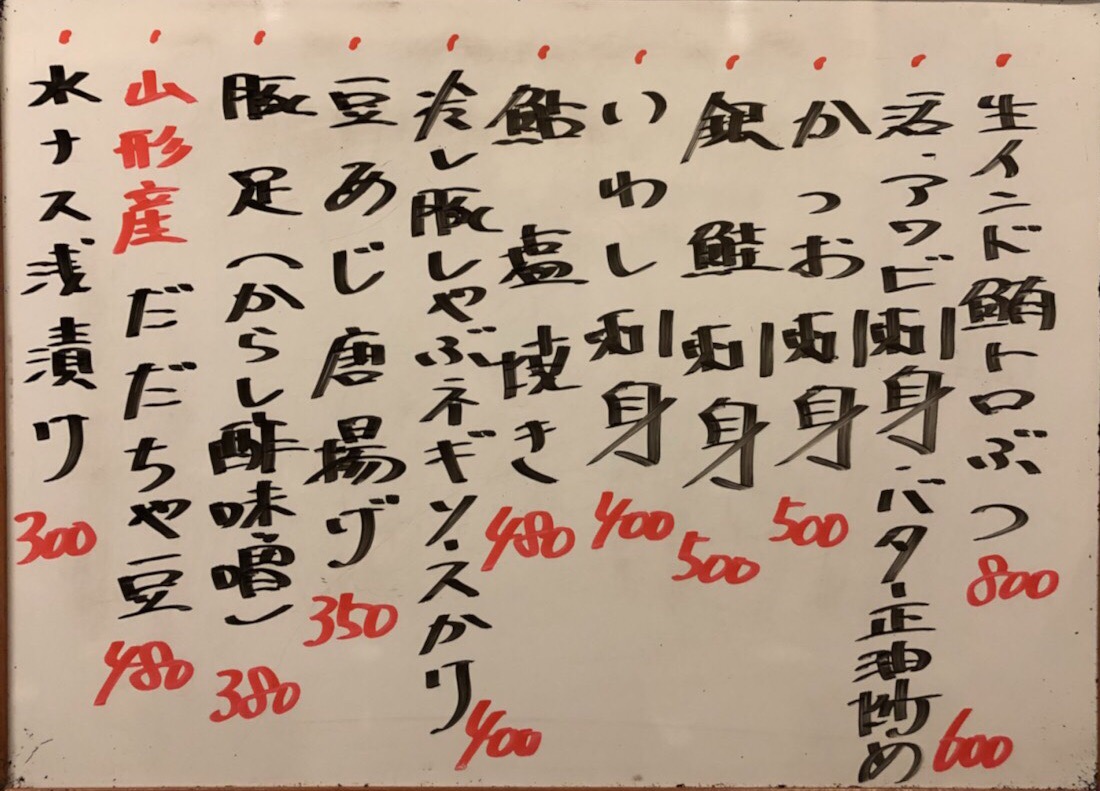 生インド鮪トロぶつ 800
活・アワビ刺身・バター正油炒め 600
かつお刺身 500
銀鮭刺身 500
いわし刺身 400
鮎塩焼き 480
冷し豚しゃぶネギソースかけ 400
豆あじ唐揚げ 350
豚足(からし酢味噌) 380
山形産だだちゃ豆 480
水ナス浅漬け 300